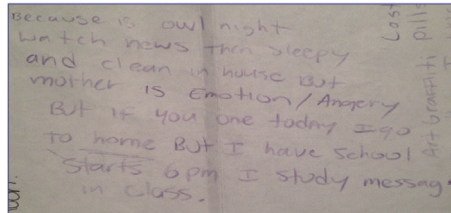 Because is owl night
watch news then sleepy
and clean in house But
mother is Emotion/Angery
But if you one today I go
To home But I have school
starts 6pm I study message
in class.
Lost
pills
Art Graffiti